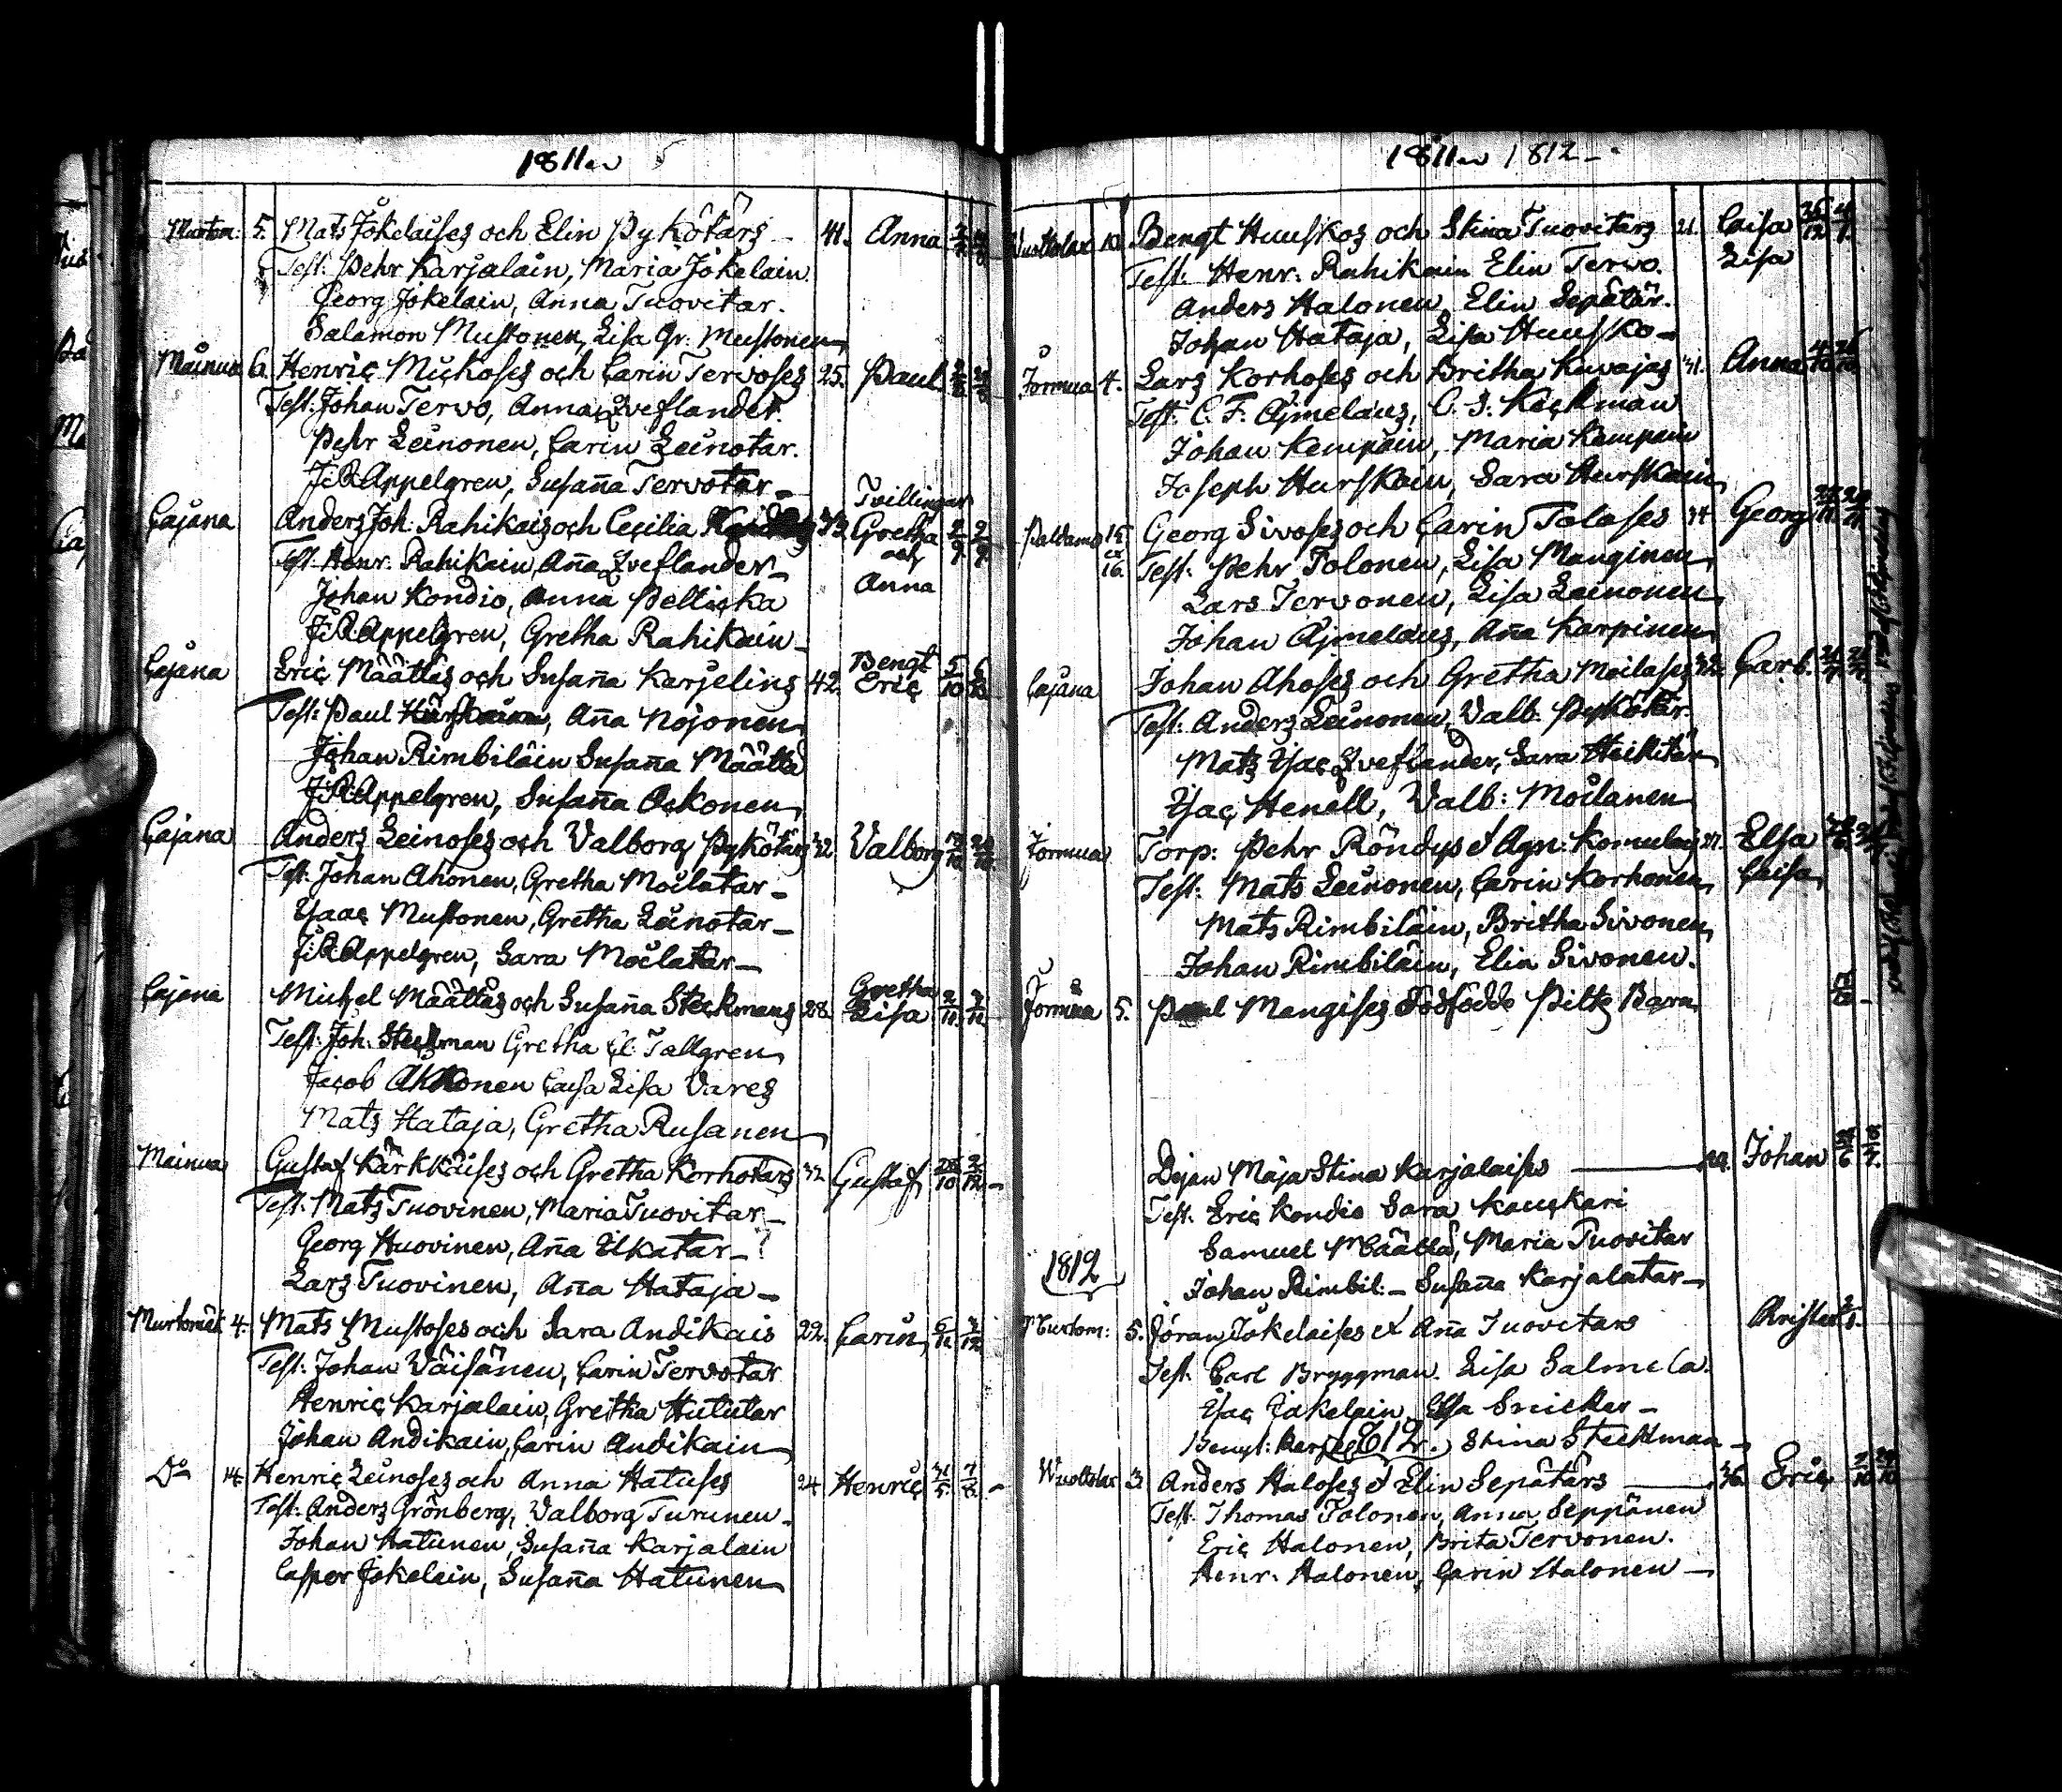 1811
Murtom: 5. Mats Jokelaises och Elin Pykötärs 41. Anna
Test: Pehr Karjalain, Maria Jokelain.
Georg Jokelain, Anna Tuovitar.
Salamon Mustonen, Lisa Gr. Mustonen
Mainua 6. Henric Muckoses och Carin Tervoses 25. Paul
Test: Johan Tervo, Anna Qveflander.
Pehr Leinonen, Carin Leinotar.
J: R: Appelgren, Susaña Tervotar
Cajana Anders Joh: Rahikais och Cecilia 33 Tvillingar Gretha och Anna 2/9 2/9
Test: Henr: Rahikain, Aña Qveflander
Johan Kondio, Anna Pelticka
J: R: Appelgren, Gretha Rahikain
Cajana Eric Määttäs och Susaña Karjelins 42. Bengt Eric 5/10 6/10
Test: Paul Hurskainen, Aña Nojonen
Johan Rimbiläin Susaña Määttä
J: R: Appelgren, Susaña Ockonen
Cajana Anders Leinoses och Valborg Pykötärs 32 Valborg
Test: Johan Ahonen, Gretha Moilatar
Ysaac Mustonen, Gretha Leinotar
J: R: Appelgren, Sara Moilatar
Cajana Michel Määttäs och Susaña Steckmans 28. Gretha Lisa
Test: Joh: Steckman Gretha El: Tallgren
Jacob Ahkonen Caisa Lisa Vares
Mats Hataja, Gretha Rusanen
Mainua Gustaf Kärkkäises och Gretha Korhotars 32 Gustaf 28/10 2/12
Test: Mats Tuovinen, Maria Tuovitar
Georg Huovinen, Aña Ilkatar
Lars Tuovinen, Aña Hataja
Murtomäk 4. Mats Mustoses och Sara Andikais 22. Carin
Test: Johan Väisänen, Carin Tervotar
Henric Karjalain, Gretha Hututar
Johan Andikain, Carin Andikain
Do 14. Henric Leinoses och Anna Hatuses 24 Henric
Test: Anders Grönberg, Valborg Turunen
Johan Hatunen, Susaña Karjalain
Casper Jokelain, Susaña Hatunen
1811 1812
Vuottolax 10. Bengt Huuskos och Stina Tuovitars 21. Caisa Lisa
Test: Henr: Rahikain Elin Tervo.
Anders Halonen, Elin Sepätär.
Johan Hataja, Lisa Huusko
Jormua 4. Lars Korhoses och Britha Kuvajas 41. Anna
Test: C. F. Ajmelæus, C. S. Keckman
Johan Kempain, Maria Kempain
Joseph Hurskain, Sara Hurskain
Paldamo 15 et 16. Georg Sivoses och Carin Toloses 34 Georg
Test: Pehr Tolonen, Lisa Manginen
Lars Tervonen, Lisa Leinonen
Johan Ajmelæus, Aña Karpinen
Cajana Johan Ahoses och Gretha Moilases Car: b.
Test: Anders Leinonen, Valb: Pykötär.
Mats Ysac Qveflander, Sara Heikitar
Ysac Henell, Valb: Moilanen
Jormua Torp: Pehr Röndys & Agn: Komulais 27. Elsa Caisa
Test: Mats Leinonen, Carin Korhonen
Mats Rimbiläin, Britha Sivonen
Johan Rimbiläin, Elin Sivonen.
Jormua 5. Paul Mangises Dödfödde Pilts Barn
Pigan Maja Stina Karjalaises Johan
Test: Eric Kondio Sara Kauckari
Samuel Määttä, Maria Tuovitar
1812 Johan Rimbil: Susaña Karjalatar
Murtom: 5. Jöran Jokelaises et Aña Tuovitars Christer
Test: Carl Bryggman. Lisa Salmela.
Ysac Jokelain, Elsa Snicker
Stina Steckman
1812.
Wuottolax 3. Anders Haloses & Elin Sepätärs 36. Eric
Test: Thomas Tolonen, Anna Seppänen
Eric Halonen, Brita Tervonen.
Henr: Halonen, Carin Halonen